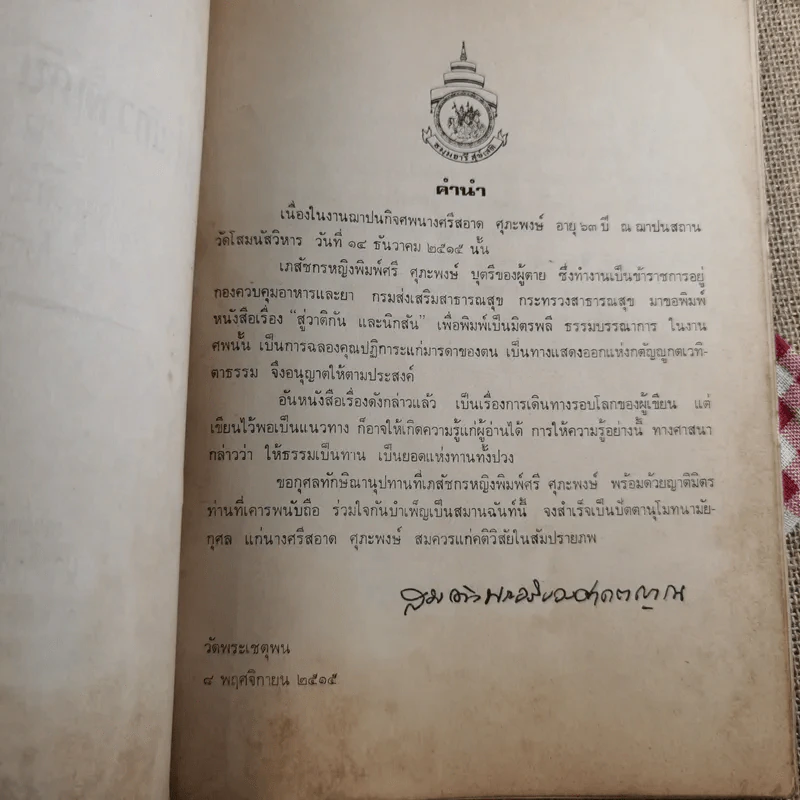 คำนำ
เนื่องในงานฌาปนกิจศพนางศรีสอาด ศุภะพงษ์ อายุ ๖๓ ปี ณ ฌาปนสถาน
วัดโสมนัสวิหาร วันที่ ๑๔ ธันวาคม ๒๕๑๕ นั้น
เภสัชกรหญิงพิมพ์ศรี ศุภะพงษ์ บุตรีของผู้ตาย ซึ่งทำงานเป็นข้าราชการอยู่
กองควบคุมอาหารและยา กรมส่งเสริมสาธารณสุข กระทรวงสาธารณสุข มาขอพิมพ์
หนังสือเรื่อง "สู่วาติกัน และนิกสัน" เพื่อพิมพ์เป็นมิตรพลี ธรรมบรรณาการ ในงาน
ศพนั้น เป็นการฉลองคุณปฏิการะแก่มารดาของตน เป็นทางแสดงออกแห่งกตัญญูกตเวทิ-
ตาธรรม จึงอนุญาตให้ตามประสงค์
อันหนังสือเรื่องดังกล่าวแล้ว เป็นเรื่องการเดินทางรอบโลกของผู้เขียน แต่
เขียนไว้พอเป็นแนวทาง ก็อาจให้เกิดความรู้แก่ผู้อ่านได้ การให้ความรู้อย่างนี้ ทางศาสนา
กล่าวว่า ให้ธรรมเป็นทาน เป็นยอดแห่งทานทั้งปวง
ขอกุศลทักษิณานุปทานที่เภสัชกรหญิงพิมพ์ศรี ศุภะพงษ์ พร้อมด้วยญาติมิตร
ท่านที่เคารพนับถือ ร่วมใจกันบำเพ็ญเป็นสมานฉันท์นี้ จงสำเร็จเป็นปัตตานุโมทนามัย-
กุศล แก่นางศรีสอาด ศุภะพงษ์ สมควรแก่คติวิสัยในสัมปรายภพ
วัดพระเชตุพน
๘ พฤศจิกายน ๒๕๑๕